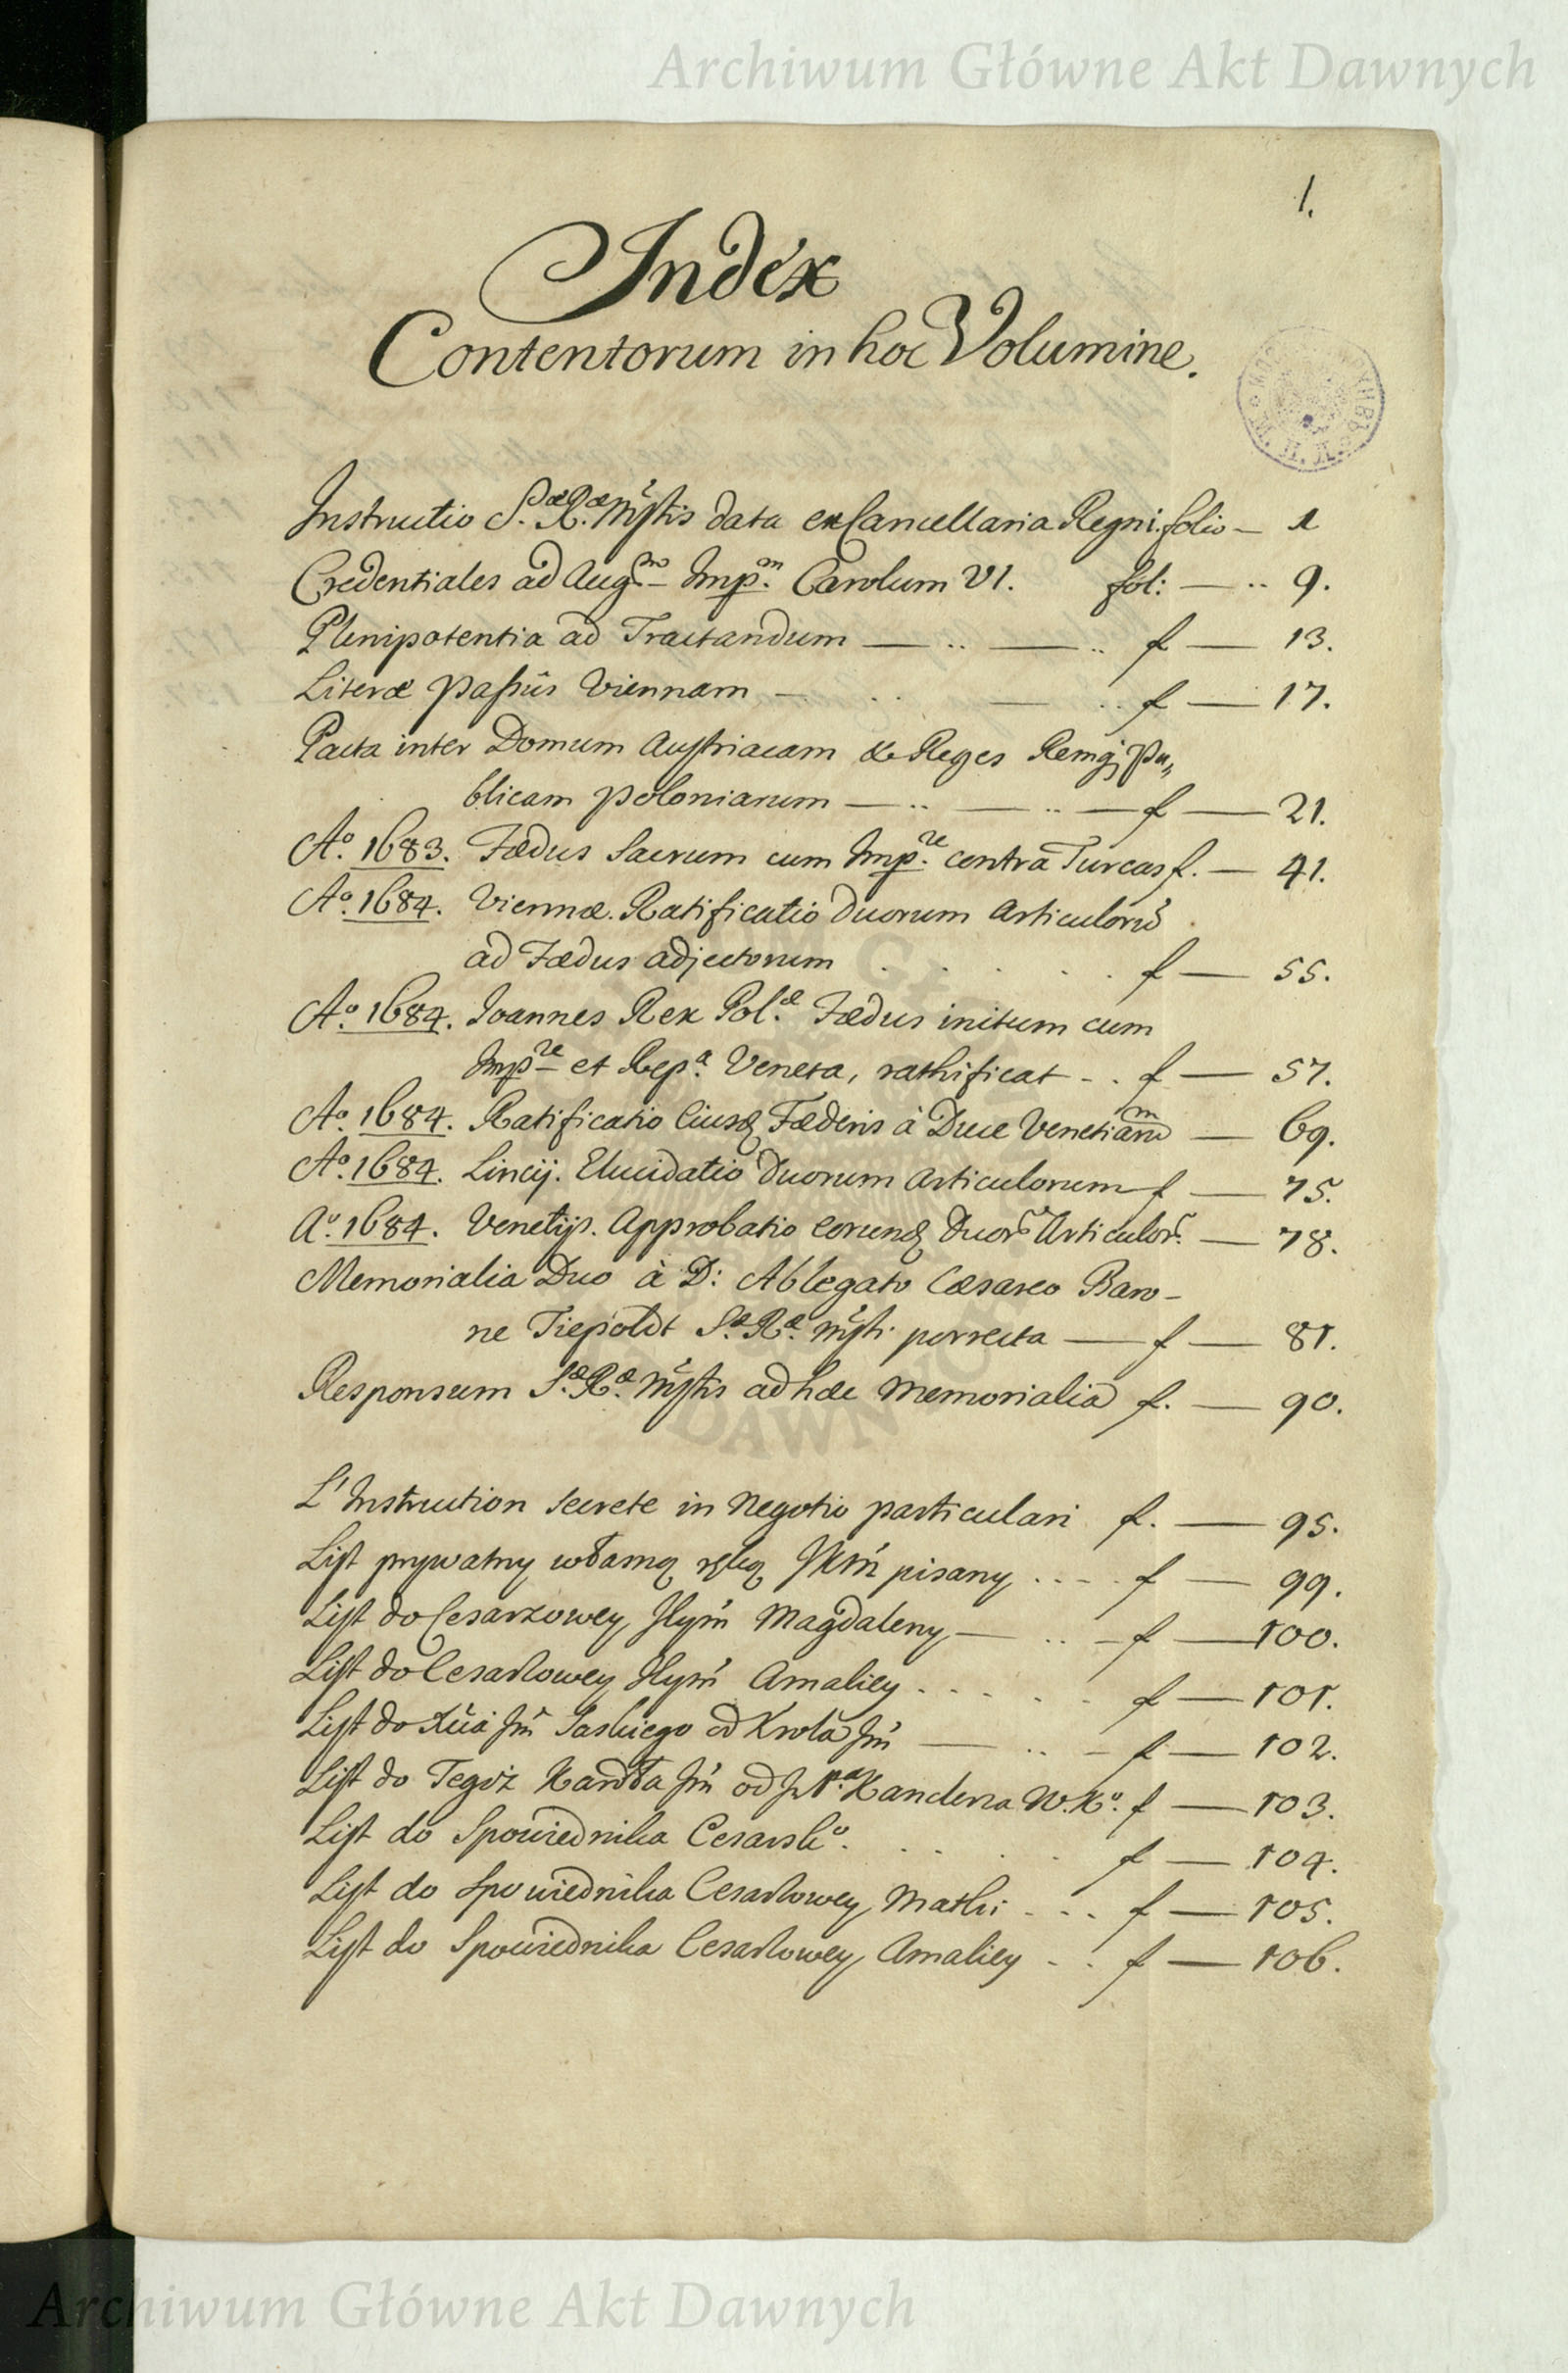 Archiwum Główne Akt Dawnych
1.
Index
Contentorum in hoc Volumine.
Instructio S.æ R.æ Mſtis data ex Cancellaria Regni. folio — 1
Credentiales ad Augmm Imp.m Carolum VI. fol: — .. 9.
Plenipotentia ad Tractandum — .. — .. f — 13.
Literæ paſsûs Viennam — . — .. f — 17.
Pacta inter Domum Austriacam & Reges Remq; Pu„
blicam Poloniarum — .. — .. — f — 21.
Aº. 1683. Fœdus Sacrum cum Imp.re contra Turcas f. — 41.
Aº. 1684. Viennæ. Ratificatio duorum Articulorū
ad Fœdus adjectorum . . . . . f — 55.
Aº. 1684. Joannes Rex Pol.æ Fœdus initum cum
Impre et Rep.a Veneta, rathificat - . f — 57.
Aº. 1684. Ratificatio Eiusq Fœderis à Duce Venetiarum — 69.
Aº. 1684. Lincij. Elucidatio Duorum Articulorum f — 75.
Aº. 1684. Venetijs. Approbatio Eorunq Duor. Articulor. — 78.
Memorialia Duo à D: Ablegato Cæsareo Baro-
ne Tiepoldt S.æ R.æ Mſti porrecta — f — 81.
Responsum S.æ R.æ Mſtis ad hæc Memorialia f. — 90.
L'Instruction secrete in Negotio particulari f. — 95.
List prywatny własną ręką JKM pisany . . - . f — 99.
List do Cesarzowey Jeym Magdaleny — .. - f — 100.
List do Cesarzowey Jeym Amaliey . . . . . f — 101.
List do Xcia Jm Saskiego od Krola Jm — .. - f — 102.
List do Tegoż Jm od Kanclerza W. Kº. f — 103.
List do Spowiednika Cesarskº. . . . . f — 104.
List do Spowiednika Cesarzowey Matki . - - . f — 105.
List do Spowiednika Cesarzowey Amaliey - . . f — 106.
Archiwum Główne Akt Dawnych